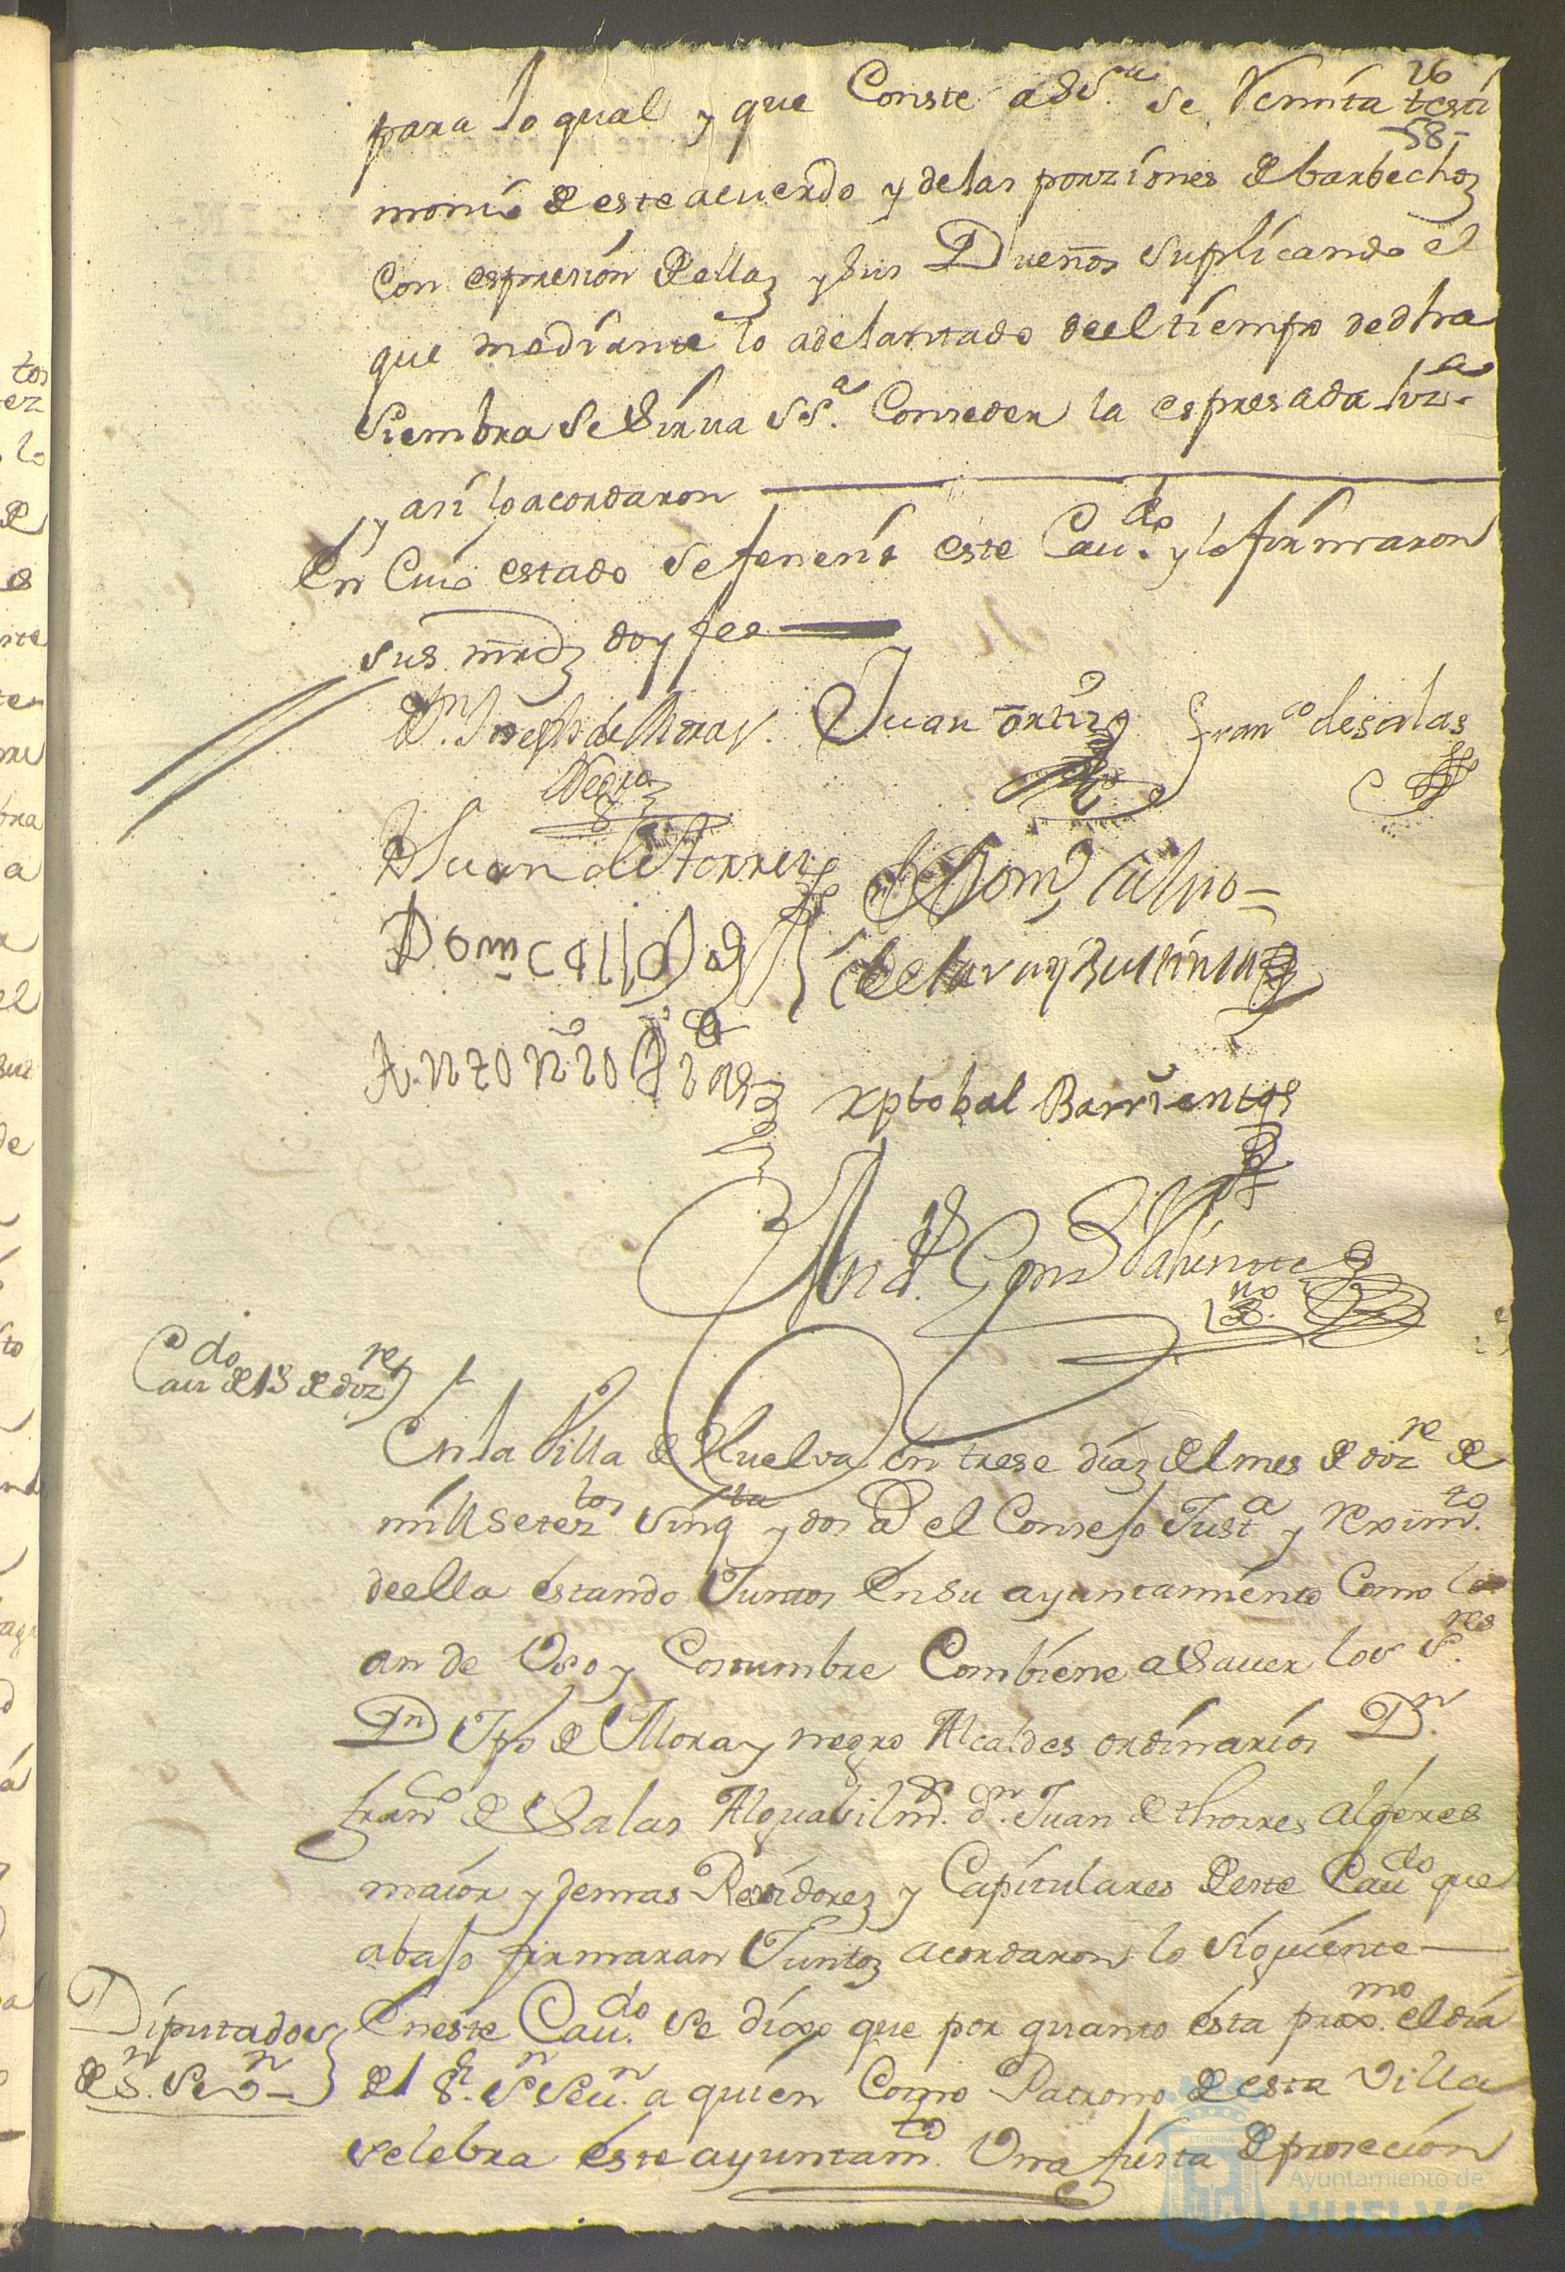 26
para lo qual y que Conste a Su S.ª se Remita testi
58
monio de este acuerdo y de las porziones de barbechos
con espresion de ellas y sus Dueños suplicando el
que mediante lo adelantado de el tiempo de dha
siembra se sirva S S.ª Conseder la espresada liz.ª
y asi lo acordaron
En Cuio estado se fenesio este Cau.do y lo firmaron
sus mrds doy fee
Dn. Joseph de Mora y Negro
Juan ortiz
Fran.co de salas
D Juan de torres
Anzonio Dias
xptobal Barrientos
Cau.do de 13 de diz.re
En la Villa de Huelva en trese dias del mes de diz.re de
mill setez.tos sinq.ta y dos a.s el Consejo Just.a y reximi.to
de ella estando Juntos en su ayuntamiento Como lo
an de Uso y Costumbre Combiene a Sauer los S.res
Dn Jph de Mora y negro Alcaldes ordinarios Dn.
Fran.co de Salas Alguasil m.r dn. Juan de thorres alferes
maior y demas Rexidores y Capitulares de este Cau.do que
abajo firmaran Juntos acordaron lo siguiente
Diputados de S.n Seu.n
En este Cau.do se dixo que por quanto esta prox.mo el dia
del S.r S.n Seu.n a quien Como Patrono de esta Villa
selebra este ayuntam.to Una fiesta de prosecion
Ayuntamiento de
HUELVA